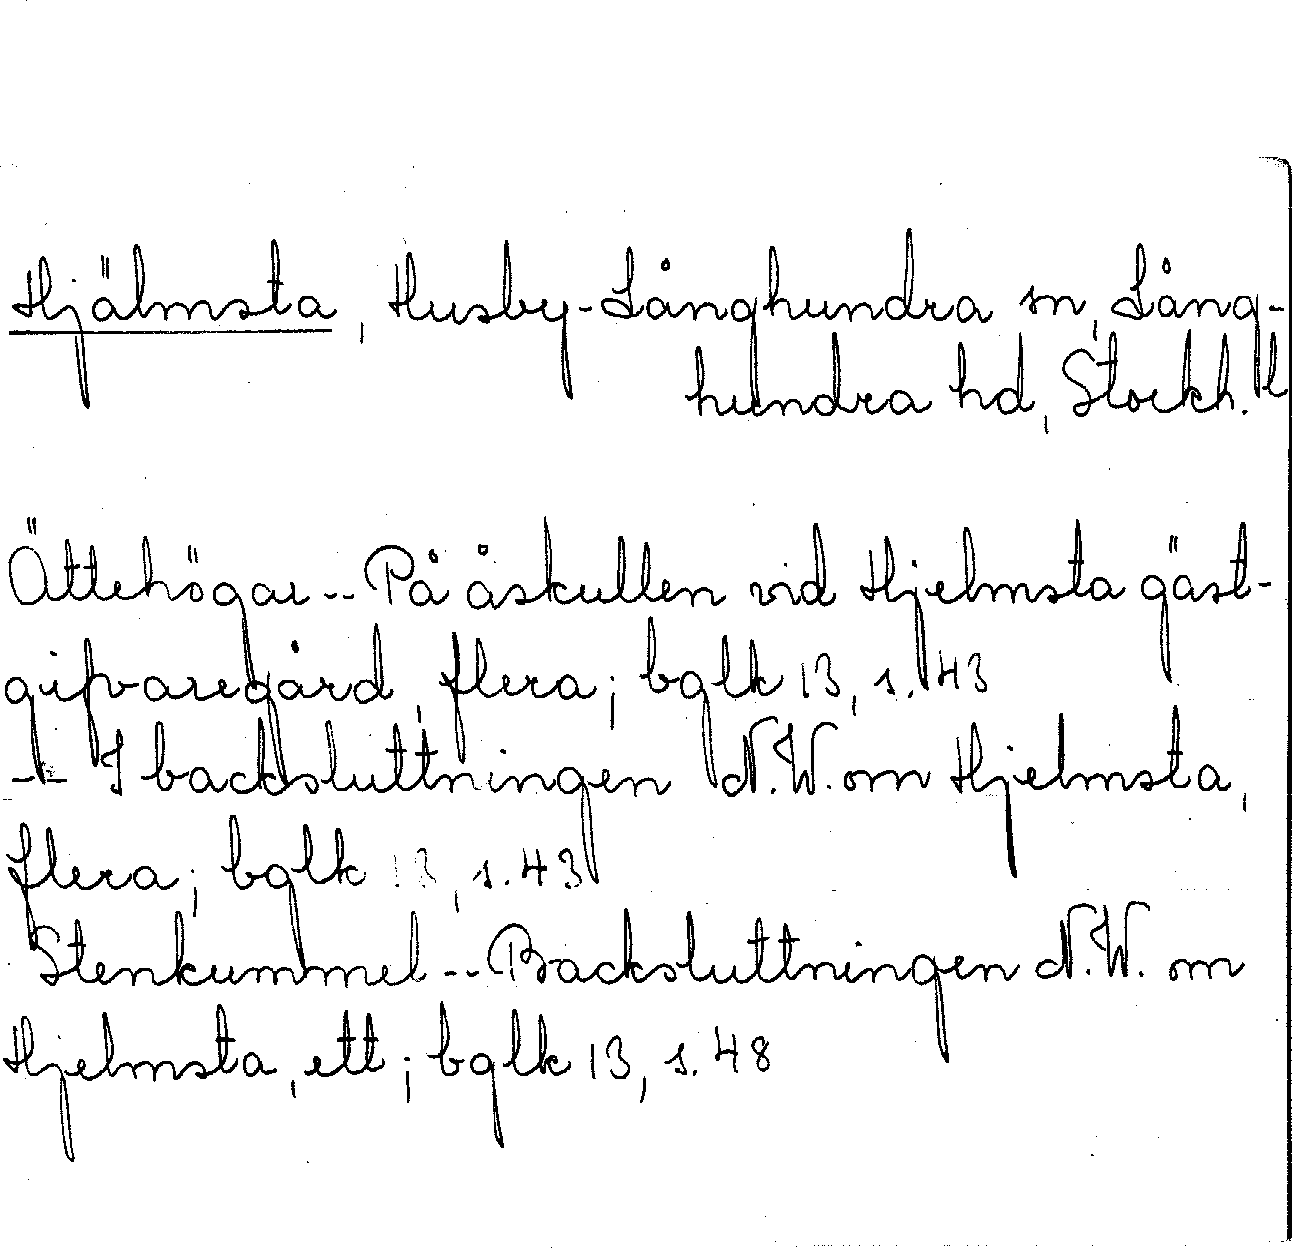 Hjälmsta, Husby-Långhundra sn, Lång-
hundra hd, Stockh. l
Ättehögar -- På åskullen vid Hjelmsta gäst-
gifvaregård, flera; bglk 13, s. 43
-- I backsluttningen N.W. om Hjelmsta,
flera; bglk 13, s. 43
Stenkummel -- Backsluttningen N.W. om
Hjelmsta, ett; bglk 13, s. 48